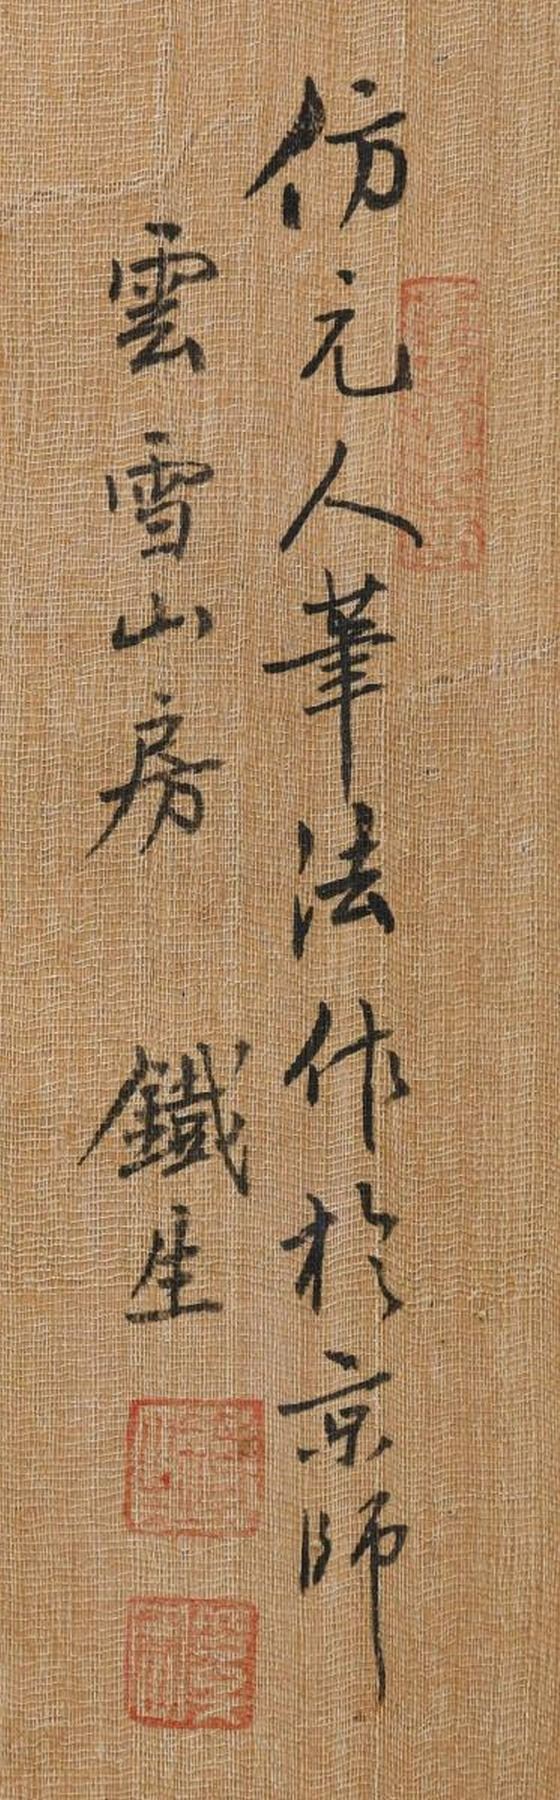 仿元人筆法作於京師
雲雪山房 鐵生